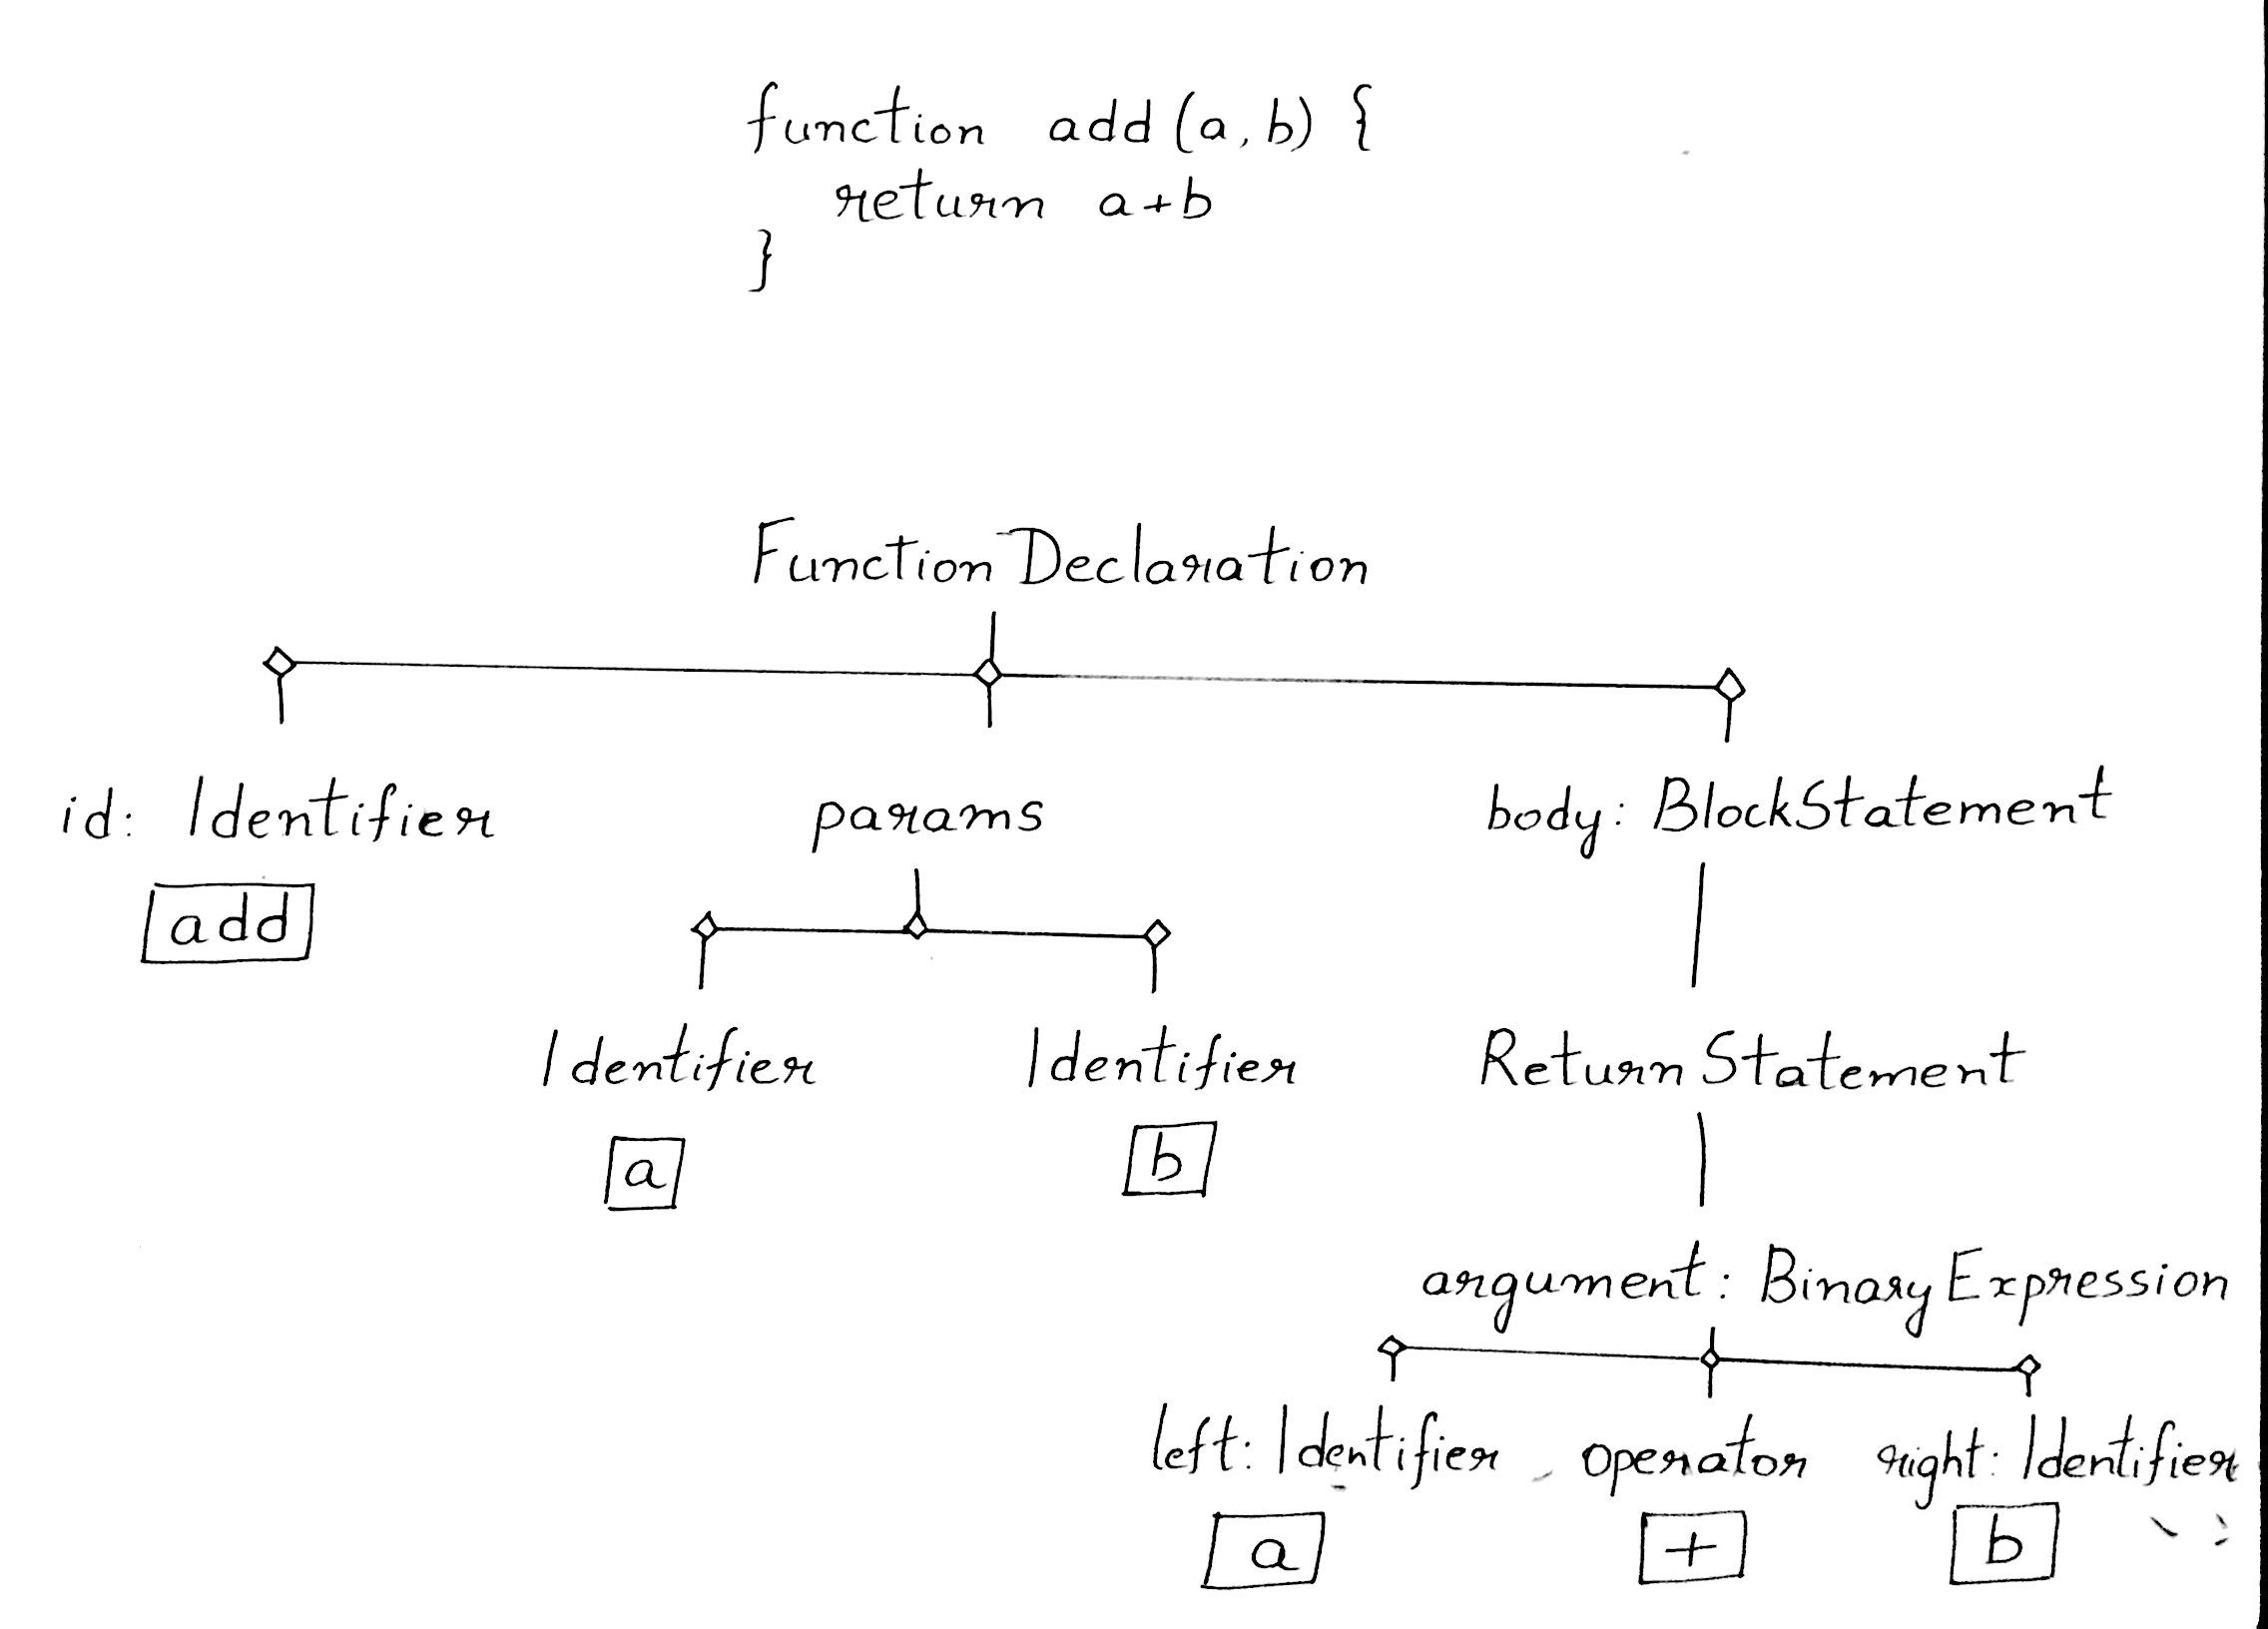 function add(a, b) {
return a+b
}
Function Declaration
id: Identifier params body: BlockStatement
add
Identifier Identifier Return Statement
a b
argument: Binary Expression
left: Identifier operator right: Identifier
a + b